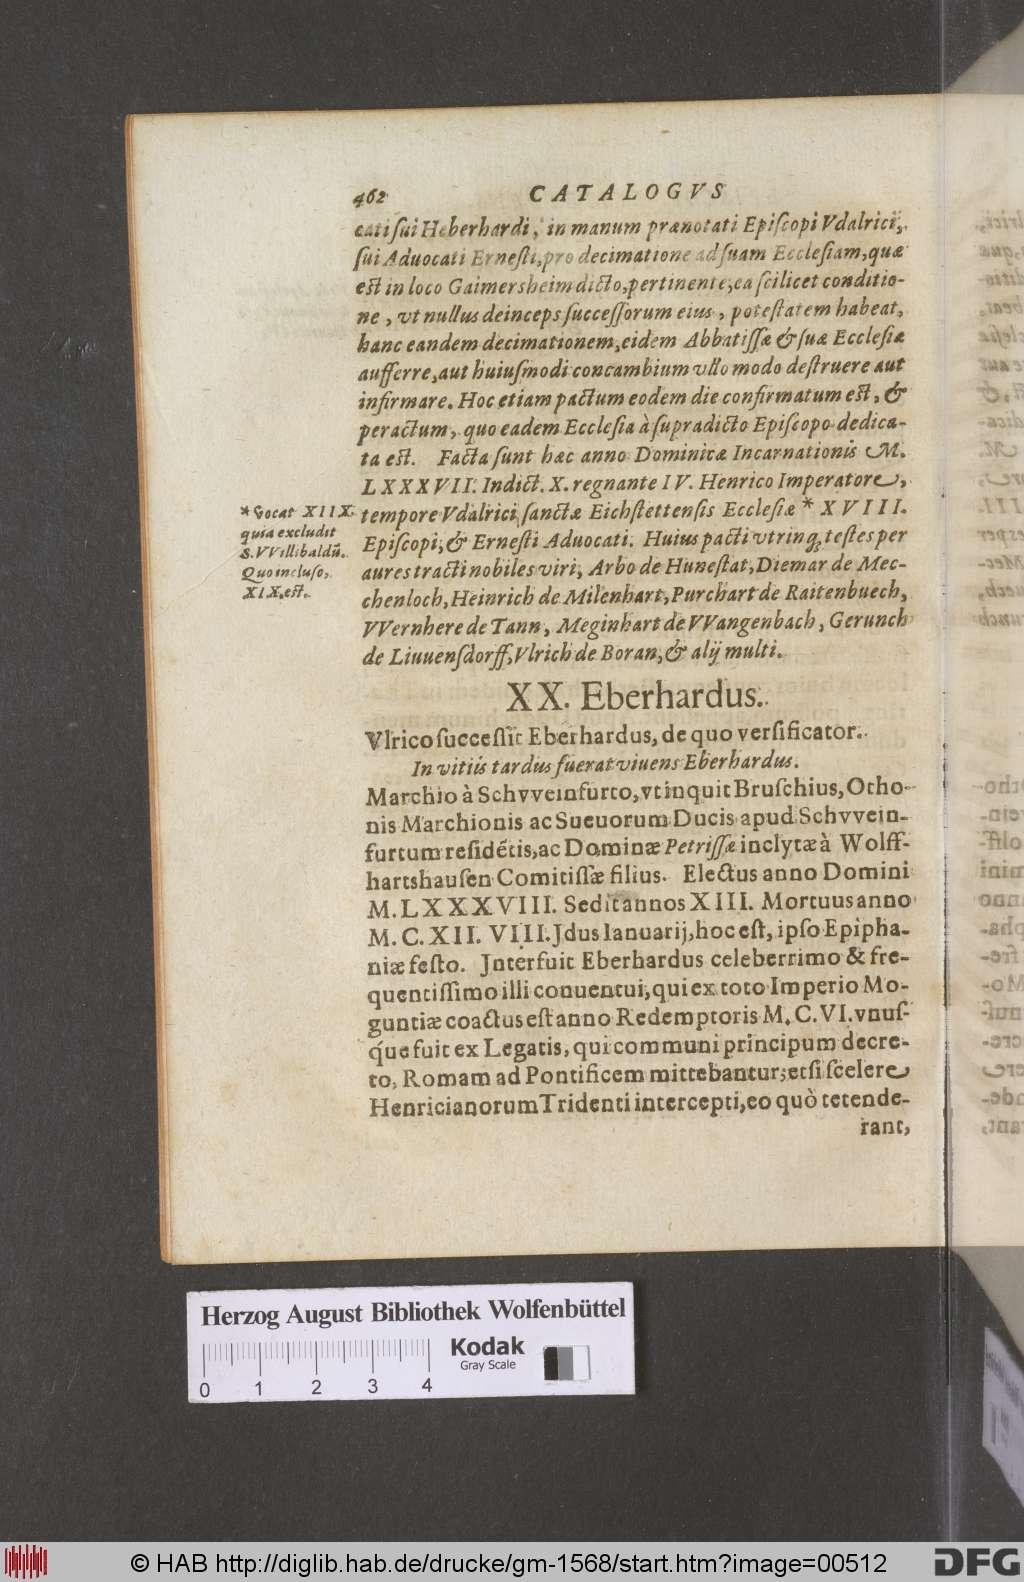 462 CATALOGVS
cati ſui Heberhardi, in manum prænotati Epiſcopi Vdalrici,
ſui Aduocati Erneſti, pro decimatione ad ſuam Eccleſiam, quæ
eſt in loco Gaimersheim dicto, pertinente, ea ſcilicet conditio-
ne, vt nullus deinceps ſucceſſorum eius, poteſtatem habeat,
hanc eandem decimationem, eidem Abbatiſſæ & ſuæ Eccleſiæ
aufferre, aut huiuſmodi concambium vllo modo deſtruere aut
infirmare. Hoc etiam pactum eodem die confirmatum eſt, &
peractum, quo eadem Eccleſia à ſupradicto Epiſcopo dedica-
ta eſt. Facta ſunt hæc anno Dominicæ Incarnationis M.
LXXXVII. Indict. X. regnante IV. Henrico Imperatore,
tempore Vdalrici ſanctæ Eichſtettenſis Eccleſiæ * XVIII.
Epiſcopi, & Erneſti Aduocati. Huius pacti vtrinq; teſtes per
aures tracti nobiles viri, Arbo de Huneſtat, Diemar de Mec-
chenloch, Heinrich de Milenhart, Purchart de Raitenbuech,
VVernhere de Tann, Meginhart de VVangenbach, Gerunch
de Liuuenſdorff, Vlrich de Boran, & alij multi.
* Vocat XIIX.
quia excludit
S. VVillibaldū.
Quo incluſo,
XIX. eſt.
XX. Eberhardus.
Vlrico ſucceſſit Eberhardus, de quo verſificator.
In vitiis tardus fuerat viuens Eberhardus.
Marchio à Schvveinfurto, vt inquit Bruſchius, Otho-
nis Marchionis ac Sueuorum Ducis apud Schvvein-
furtum reſidētis, ac Dominæ Petriſſæ inclytæ à Wolff-
hartshauſen Comitiſſæ filius. Electus anno Domini
M. LXXXVIII. Sedit annos XIII. Mortuus anno
M. C. XII. VIII. Jdus Ianuarij, hoc eſt, ipſo Epipha-
niæ feſto. Jnterfuit Eberhardus celeberrimo & fre-
quentiſſimo illi conuentui, qui ex toto Imperio Mo-
guntiæ coactus eſt anno Redemptoris M. C. VI. vnuſ-
q́ue fuit ex Legatis, qui communi principum decre-
to, Romam ad Pontificem mittebantur; etſi ſcelere
Henricianorum Tridenti intercepti, eo quò tetende-
rant,
Herzog August Bibliothek Wolfenbüttel
Kodak
Gray Scale
0 1 2 3 4
© HAB http://diglib.hab.de/drucke/gm-1568/start.htm?image=00512
DFG